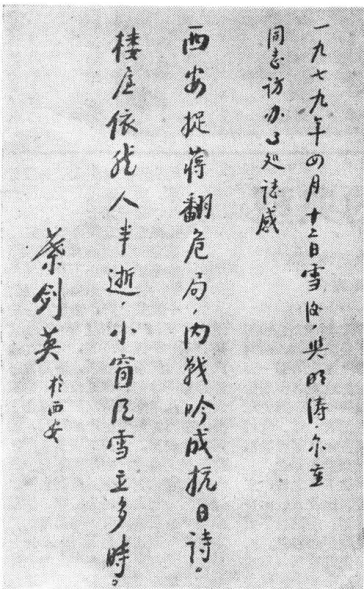 一九七九年四月十二日雪後,與明涛、尔立
同志访办事处誌感
西安捉蒋翻危局,内战吟成抗日诗。
楼屋依然人半逝,小窗风雪立多時。
葉剑英於西安